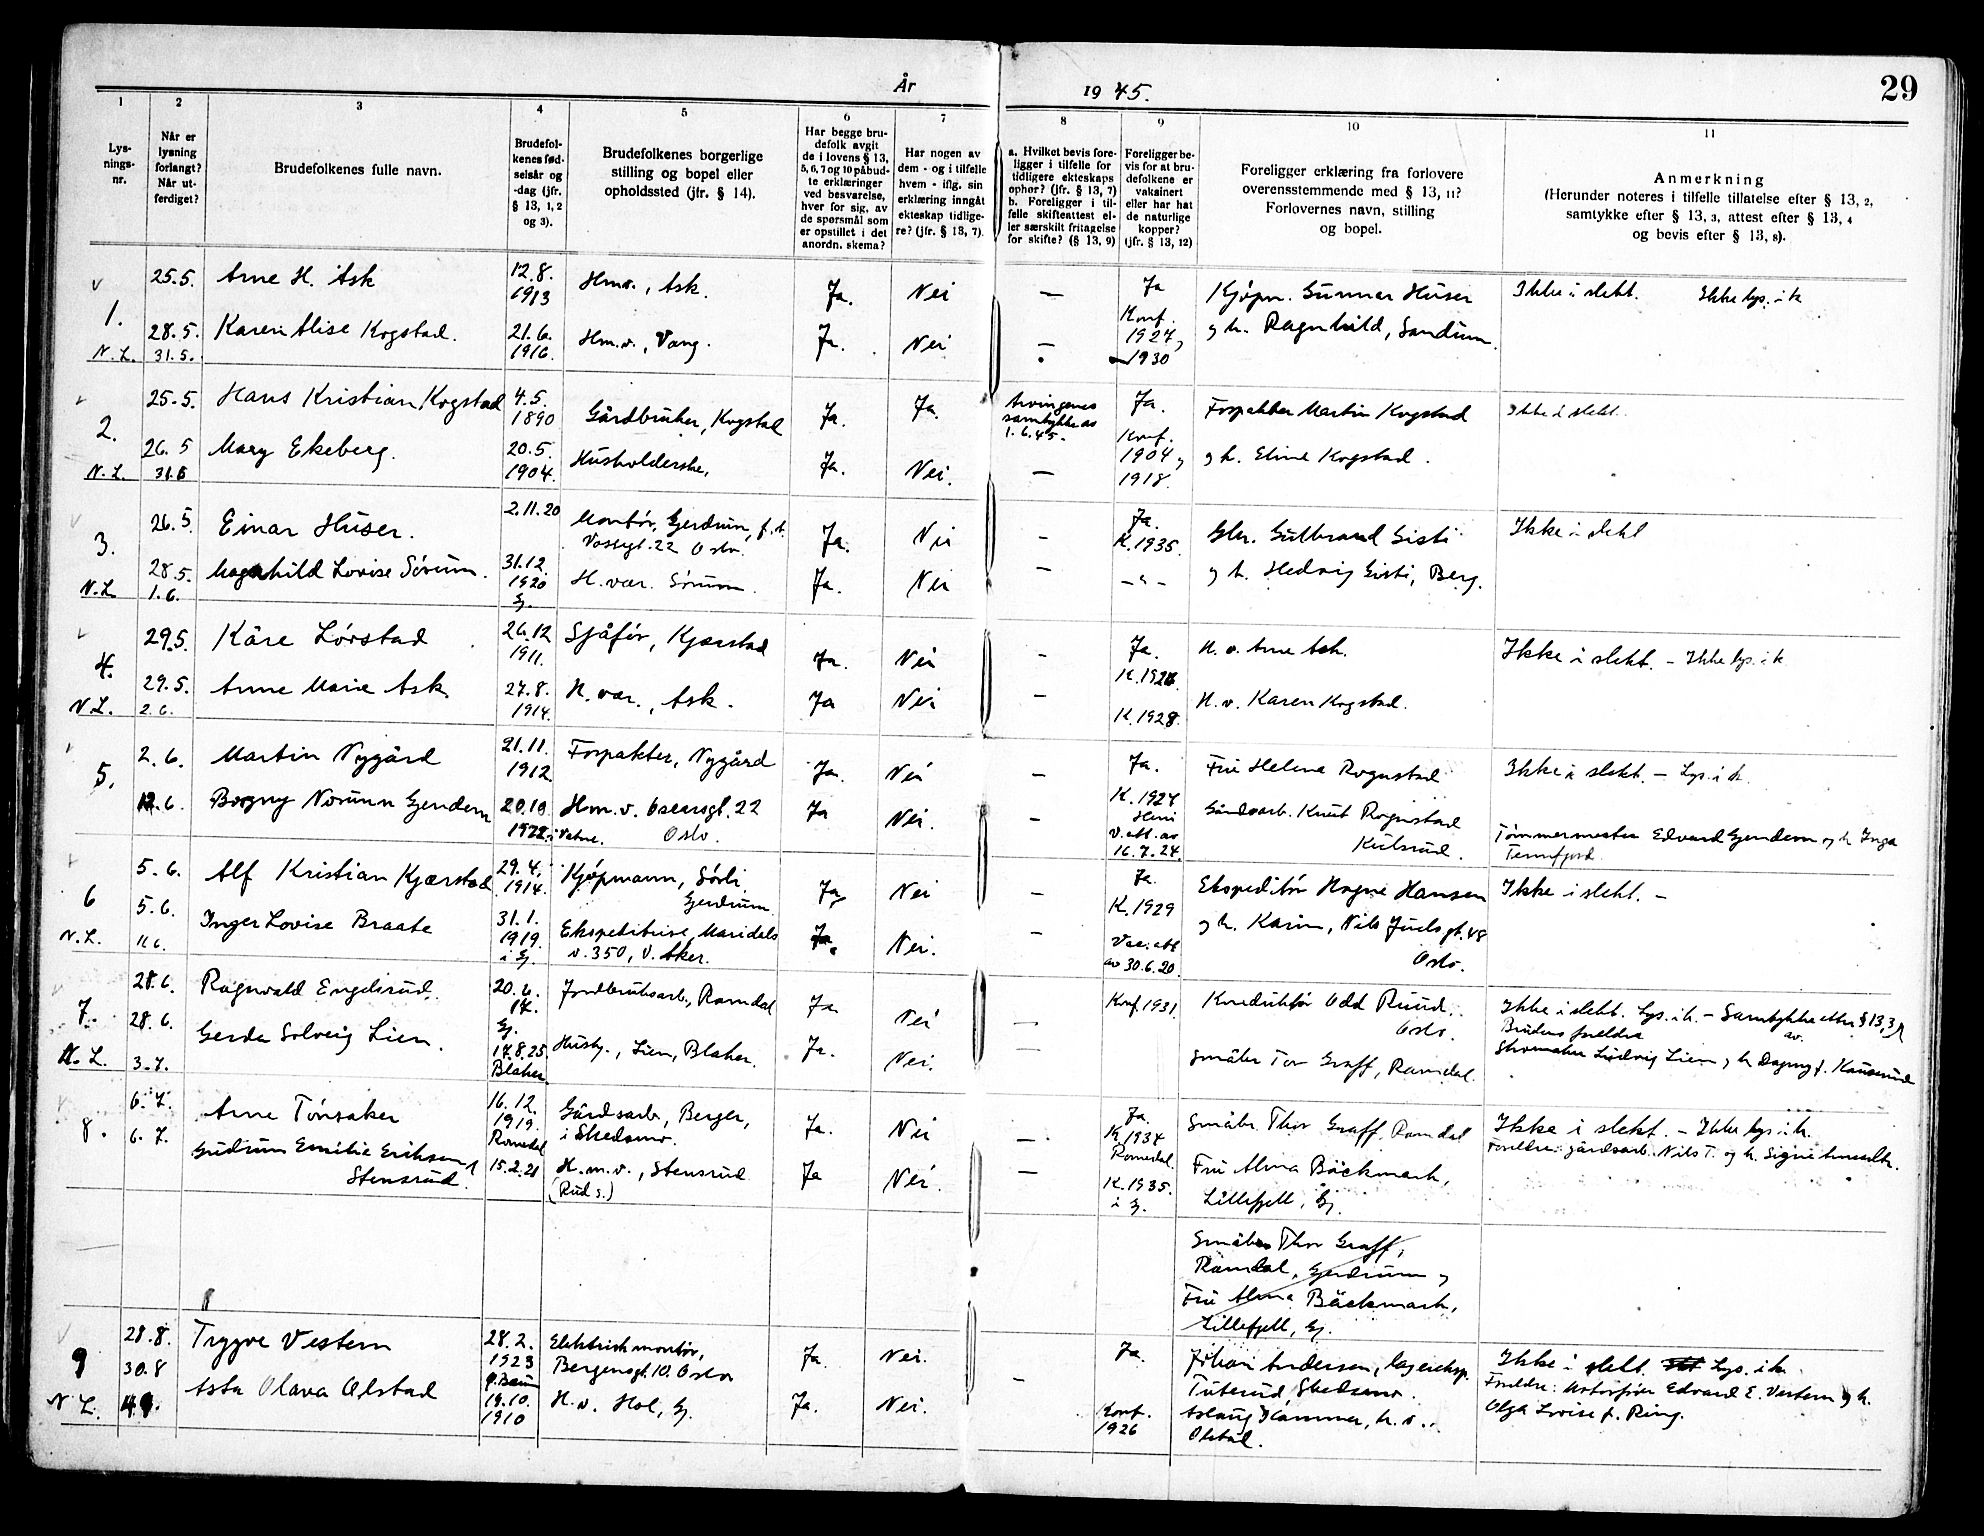 År
19 45.
29
1
2
3
4
5
6
7
8
9
10
11
Lys-
nings-
nr.
Når er
lysning
forlangt?
Når ut-
ferdiget?
Brudefolkenes fulle navn.
Brudefol-
kenes fød-
selsår og
-dag (jfr.
§ 13, 1, 2
og 3).
Brudefolkenes borgerlige
stilling og bopel eller
opholdssted (jfr. § 14).
Har begge bru-
defolk avgit
de i lovens § 13,
5, 6, 7 og 10 påbud-
te erklæringer
ved besvarelse,
hver for sig, av
de spørsmål som
er opstillet i det
anordn. skema?
Har nogen av
dem - og i tilfelle
hvem - iflg. sin
erklæring inngåt
ekteskap tidlige-
re? (jfr. § 13, 7).
a. Hvilket bevis fore-
ligger i tilfelle for
tidligere ekteskaps
ophør? (jfr. § 13, 7)
b. Foreligger i til-
felle skifteattest el-
ler særskilt fritagelse
for skifte? (§ 13, 9)
Foreligger be-
vis for at bru-
defolkene er
vaksinert
eller har hat
de naturlige
kopper?
(jfr. § 13, 12)
Foreligger erklæring fra forlovere
overensstemmende med § 13, 11?
Forlovernes navn, stilling
og bopel.
Anmerkning
(Herunder noteres i tilfelle tillatelse efter § 13, 2,
samtykke efter § 13, 3, attest efter § 13, 4
og bevis efter § 13, 8).
1.
N.L.
25.5.
28.5.
31.5.
Arne H. Ask
Karen Alise Kogstad.
12.8.
1913
21.6.
1916
Hmv., Ask.
Hm.v., Vang.
Ja.
Ja.
Nei
Nei
—
—
Ja
Konf.
1927,
1930
Kjøpm. Gunnar Huser
og h. Ragnhild, Sandum.
Ikke i slekt. Ikke lys. i k
2.
N.L.
25.5.
26.5
31.5
Hans Kristian Kogstad
Mary Ekeberg.
4.5.
1890
20.5.
1904.
Gårdbruker, Kogstad
Husholderske,
Ja.
Ja.
Ja.
Nei.
Arvingenes
samtykke av
1.6.45.
—
Ja.
Konf.
1904 og
1918.
Forpakter Martin Kogstad
og h. Eline Kogstad.
Ikke i slekt.
3.
N.L
26.5
28.5.
1.6.
Einar Huser.
Magnhild Lovise Sørum.
2.11.20
31.12.
1920
Gj.
Montør, Gjerdrum, f.t.
Vossegt. 22 Oslo.
H.vær. Sørum.
Ja.
Ja.
Nei
Nei
-
-
Ja.
K.1935.
-"-
Gbr. Gulbrand Gisti
og h. Hedvig Gisti, Berg.
Ikke i slekt
4.
N.L.
29.5.
29.5.
2.6.
Kåre Lørstad
Anne Marie Ask
26.12
1911.
27.8.
1914.
Sjåfør, Kjærstad
H.vær., Ask.
Ja.
Ja
Nei
Nei
-
-
Ja.
K.1926.
K.1928.
H.v. Arne Ask.
H.v. Karen Kogstad.
Ikke i slekt. - Ikke lys. i k
5.
2.6.
12.6.
Martin Nygård
Borgny Norunn Gjendem
21.11.
1912
20.10
1922 i Vatne.
Forpakter, Nygård
Hm.v. Oscarsgt. 22
Oslo.
Ja.
Ja
Nei
Nei.
-
-
Ja.
K.1927
Heni
V.att. av
16.7.24.
Fru Helena Rognstad
Gårdsarb. Knut Rognstad
Kulsrud.
Ikke i slekt. - Lys. i k.
Tømmermester Edvard Gjendem og h Inga
Tennfjord.
6
N.L.
5.6.
5.6.
11.6.
Alf Kristian Kjærstad
Inger Lovise Braate
29.4.
1914.
31.1.
1919.
i Gj.
Kjøpmann, Sørli
Gjerdrum.
Ekspeditrise, Maridals
v. 350, V. Aker.
Ja,
Ja.
Nei
Nei.
-
-
Ja.
K.1929
Vac. att
av 30.6.20.
Ekspeditør Hagne Hansen
og h. Karin, Nils Juels gt. 48
Oslo.
Ikke i slekt. -
7.
N.L.
28.6.
28.6.
3.7.
Ragnvald Engelsrud.
Gerda Solveig Lien.
20.6.
17.
Gj.
17.8.25
Blaker
Jordbruksarb., Ramdal
Hush., Lien, Blaker.
Ja
Ja.
Nei
Nei.
—
—
Konf. 1931
Konduktør Odd Ruud.
Oslo.
Småbr Tor Graff, Ramdal.
Ikke i slekt. Lys. i k. - Samtykke etter § 13,3
av
Brudens foreldre
Skomaker Ludvig Lien og h Dagny f. Kauserud
8.
6.7.
6.7.
Arne Tønsaker
Gudrun Emilie Eriksen
Stensrud.
16.12.
1919.
Romedal
15.2.21
Gårdsarb, Berger,
i Skedsmo.
H.m.v., Stensrud
(Rud s.)
Ja.
Ja
Nei
Nei.
—
—
Ja.
K.1934
Romedal.
K.1935.
i Gj.
Småbr. Thor Graff, Ramdal
Fru Alma Bäckmark,
Lillefjell, Gj.
Ikke i slekt. - Ikke lys. i k.
Foreldre: gårdsarb. Nils T. og h. Signe
Småbr Thor Graff,
Ramdal, Gjerdrum og
Fru Alma Bäckmark,
Lillefjell, Gj.
9
N L.
28.8.
30.8
4.9.
Trygve Vestern
Asta Olava Olstad
28.2.
1923
19.10.
1910
Elektrisk montør,
Bergensgt. 10. Oslo
H.v. Hol, Gj.
Ja.
Ja.
Nei.
Nei.
-
Ja.
Konf.
1926
Johan Andersen, lagereksp.
Tuterud Skedsmo.
Aslaug Hammer, h.v..
Olstad.
Ikke i slekt. Lys. i k.
Foreldre: Edvard E. Vestern og h.
Olga Lovise f. Ring.